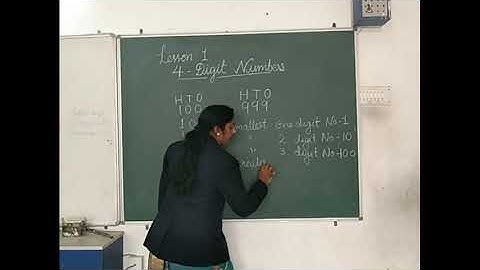 Lesson 1
4 - Digit Numbers
H T O H T O
1 0 0 9 9 9
1 0 mallest one digit No - 1
" 2 digit No - 10
3 digit No - 100